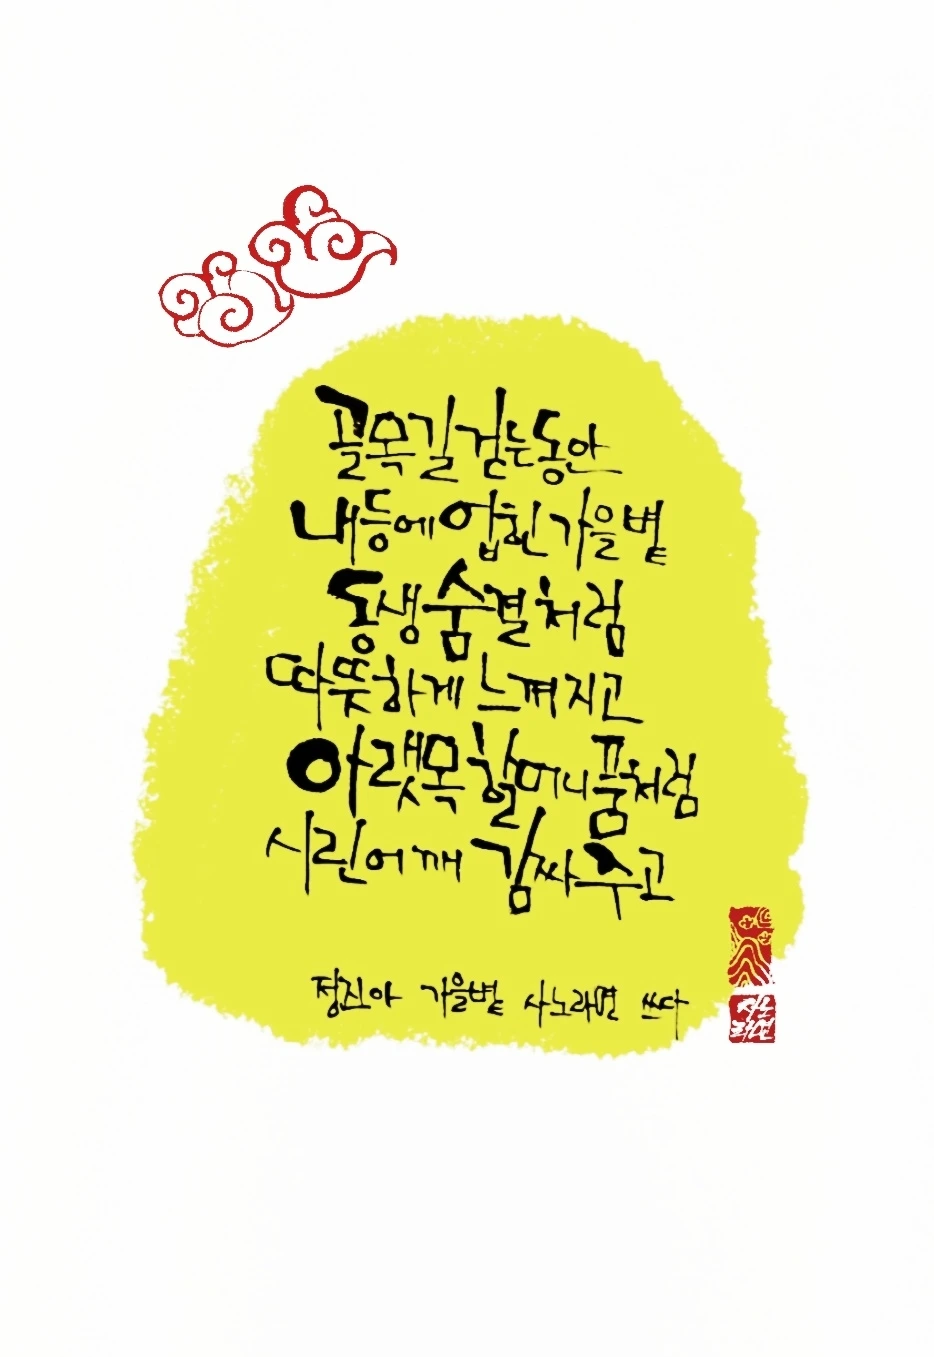 골목길 걷는 동안
내 등에 업힌 가을볕
동생 숨결처럼
따뜻하게 느껴지고
아랫목 할머니 품처럼
시린 어깨 감싸주고
정진아 가을볕 사노라면 쓰다
사노
라면